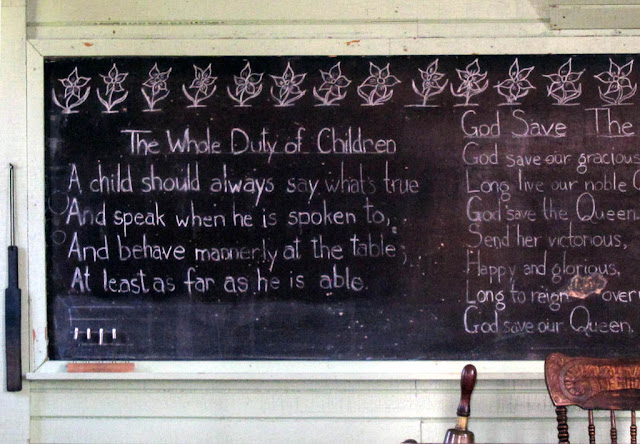 The Whole Duty of Children
A child should always say what's true
And speak when he is spoken to,
And behave mannerly at the table;
At least as far as he is able.
God Save The
God save our gracious
Long live our noble
God save the Queen
Send her victorious,
Happy and glorious,
Long to reign over
God save our Queen